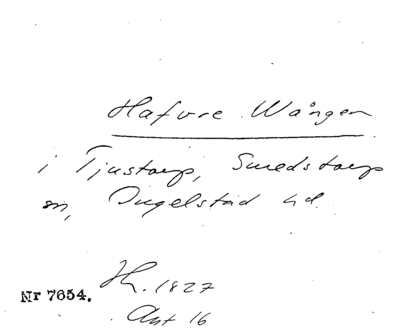 Hafvre Wången
i Tjustorp, Smedstorps
sn, Ingelstad hd.
Nr 7654. H. 1827
Akt 16